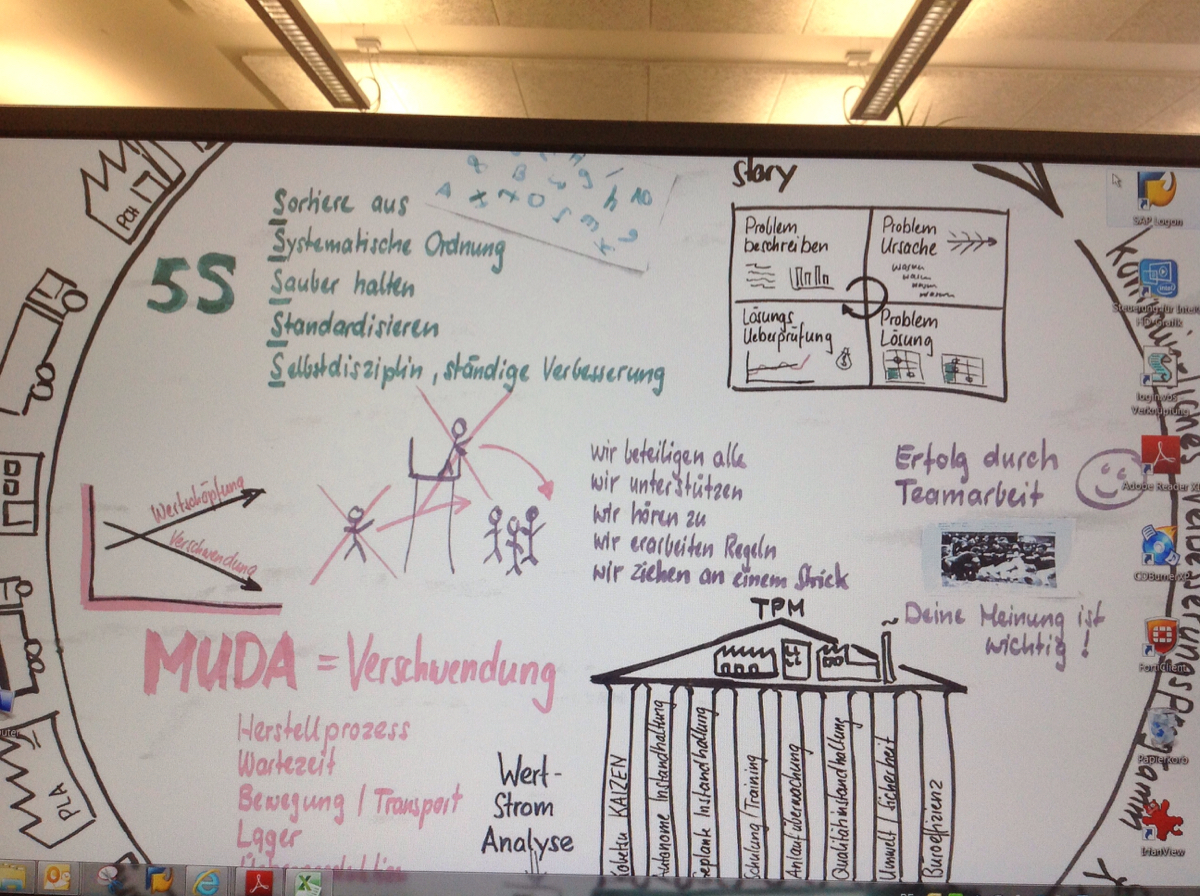 PCH
5S
Sortiere aus
Systematische Ordnung
Sauber halten
Standardisieren
Selbstdisziplin, ständige Verbesserung
Story
Problem
beschreiben
Problem
Ursache
warum
warum
warum
warum
Lösungs
Ueberprüfung
Problem
Lösung
Wertschöpfung
Verschwendung
wir beteiligen alle
wir unterstützen
wir hören zu
wir erarbeiten Regeln
wir ziehen an einem Strick
Erfolg durch
Teamarbeit
Deine Meinung ist
wichtig!
MUDA = Verschwendung
Herstellprozess
Wartezeit
Bewegung / Transport
Lager
Wert-
Strom
Analyse
TPM
Kobetsu KAIZEN
Autonome Instandhaltung
Geplante Instandhaltung
Schulung / Training
Anlaufüberwachung
Qualitätinstandhaltung
Umwelt / Sicherheit
Büroeffizienz
PLA
Kontinuierliches Verbesserungsprogramm
SAP Logon
Steuerung für Intel
HD-Grafik
login.vbs
Verknüpfung
Adobe Reader XI
CDBurnerXP
FortiClient
Papierkorb
IrfanView